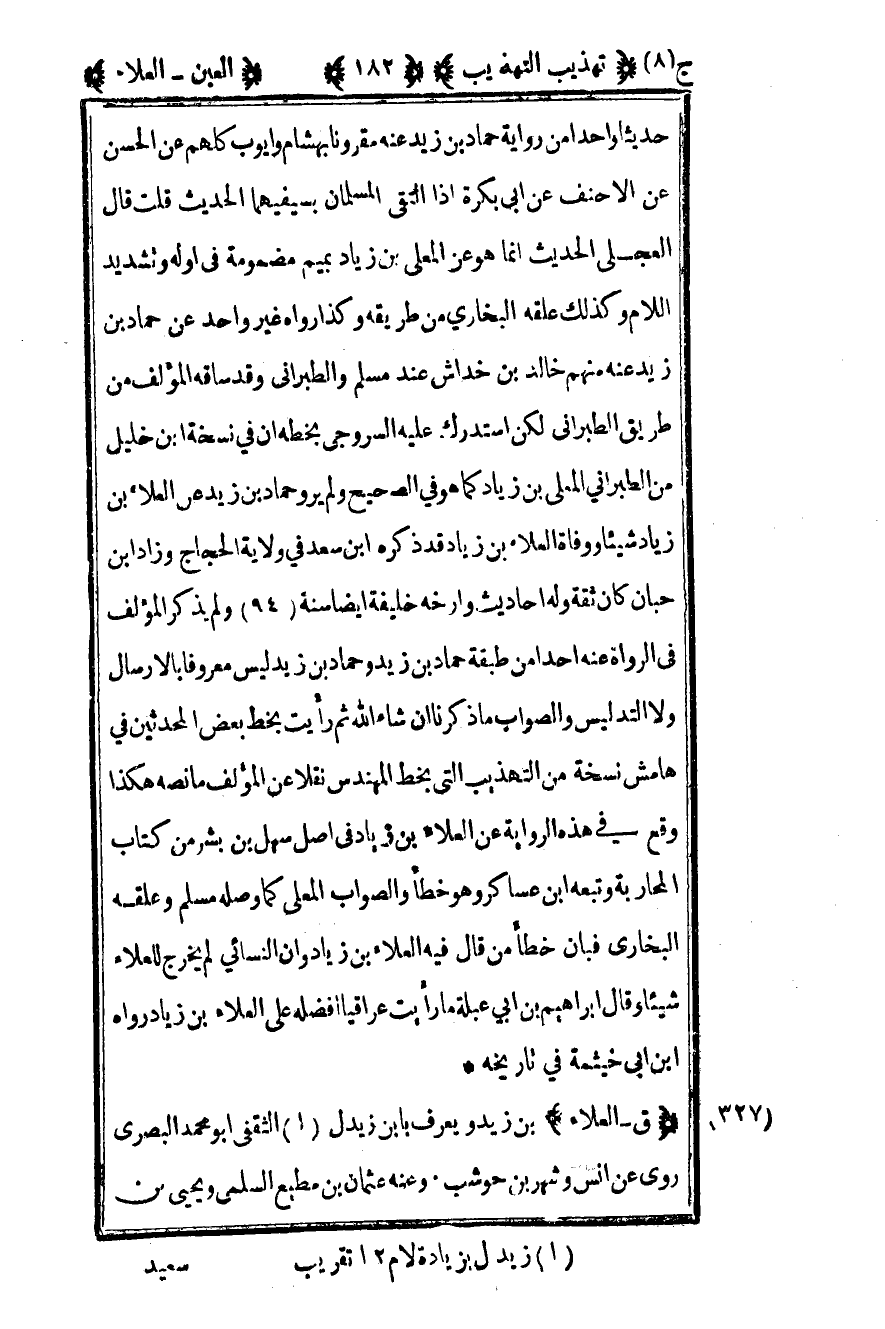 ج(٨) ﴿ تهذيب التهذيب ﴾ ﴿ ١٨٢ ﴾ ﴿ العين ـ العلاء ﴾
حديثا واحدا من رواية حماد بن زيد عنه مقرونا بهشام وايوب كلهم عن الحسن
عن الاحنف عن ابي بكرة اذا التقى المسلمان بسيفيهما الحديث قلت قال
العجلى الحديث انما هو عن المعلى بن زياد بميم مضمومة فى اوله وتشديد
اللام وكذلك علقه البخاري من طريقه وكذا رواه غير واحد عن حماد بن
زيد عنه منهم خالد بن خداش عند مسلم والطبرانى وقد ساقه المؤلف من
طريق الطبرانى لكن استدرك عليه السروجى بخطه ان في نسخة ابن خليل
من الطبراني المعلى بن زياد كما هو في الصحيح ولم يرو حماد بن زيد عن العلاء بن
زياد شيئا ووفاة العلاء بن زياد قد ذكره ابن سعد في ولاية الحجاج وزاد ابن
حبان كان ثقة وله احاديث وارخه خليفة ايضا سنة (٩٤) ولم يذكر المؤلف
فى الرواة عنه احدا من طبقة حماد بن زيد وحماد بن زيد ليس معروفا بالارسال
ولا التدليس والصواب ما ذكرنا ان شاء الله ثم رأيت بخط بعض المحدثين في
هامش نسخة من التهذيب التى بخط المهندس نقلا عن المؤلف ما نصه هكذا
وقع في هذه الرواية عن العلاء بن زياد فى اصل سهل بن بشر من كتاب
المحاربة وتبعه ابن عساكر وهو خطأ والصواب المعلى كما وصله مسلم وعلقه
البخارى فبان خطأ من قال فيه العلاء بن زياد وان النسائي لم يخرج للعلاء
شيئا وقال ابراهيم بن ابي عبلة ما رأيت عراقيا افضله على العلاء بن زياد رواه
ابن ابى خيثمة في تاريخه *
﴿ ق ـ العلاء ﴾ بن زيد ويعرف بابن زيدل (١) الثقفى ابو محمد البصرى (٣٢٧)
روى عن انس وشهر بن حوشب . وعنه عثمان بن مطيع السلمى ويحيى بن
(١) زيدل بزيادة لام ١٢ تقريب سعيد